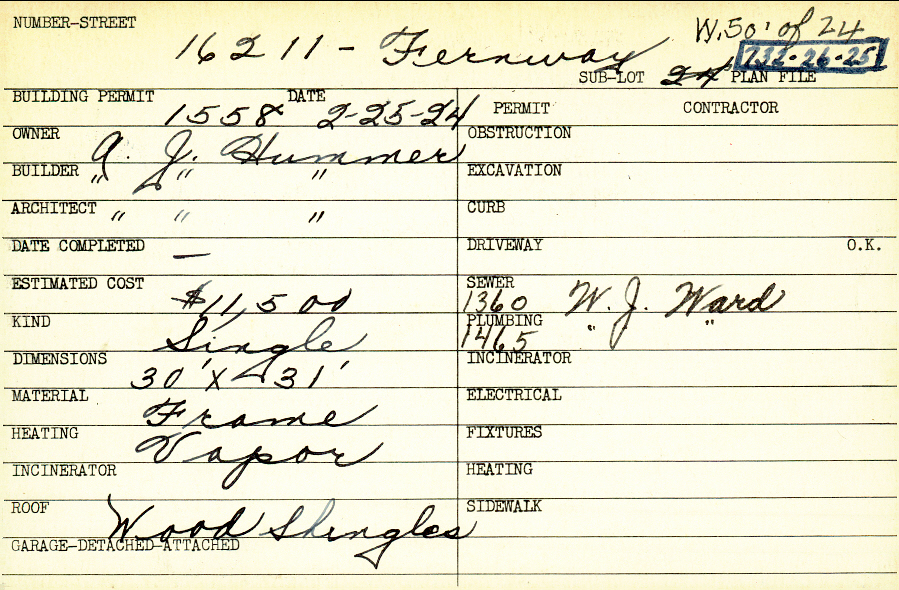 NUMBER-STREET 16211 - Fernway W. 50' of 24
SUB-LOT 24 PLAN FILE 732-26-25
BUILDING PERMIT 1558 DATE 2-25-24 PERMIT CONTRACTOR
OWNER A. J. Hummer OBSTRUCTION
BUILDER " " " EXCAVATION
ARCHITECT " " " CURB
DATE COMPLETED — DRIVEWAY O.K.
ESTIMATED COST $11,500 SEWER 1360 W. J. Ward
KIND Single PLUMBING 1465 " "
DIMENSIONS 30' X 31' INCINERATOR
MATERIAL Frame ELECTRICAL
HEATING Vapor FIXTURES
INCINERATOR HEATING
ROOF Wood Shingles SIDEWALK
GARAGE-DETACHED-ATTACHED